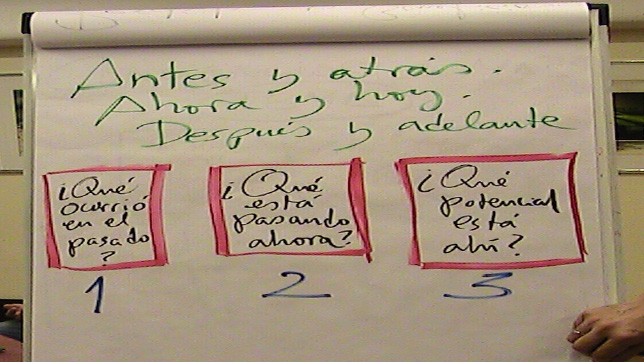 Antes y atrás.
Ahora y hoy.
Después y adelante
¿Qué
ocurrió
en el
pasado
?
1
¿Qué
está
pasando
ahora?
2
¿Qué
potencial
está
ahí?
3